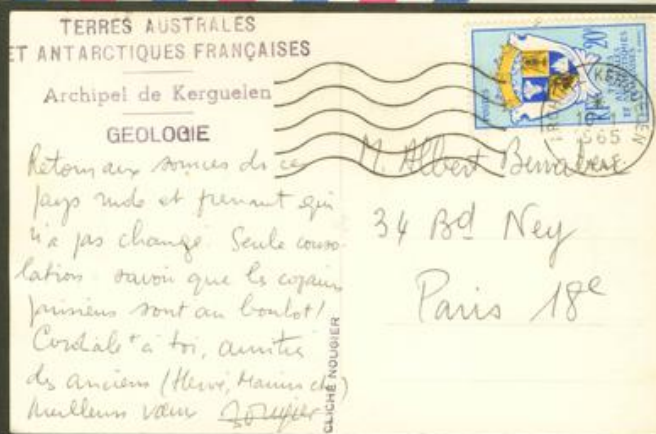 TERRES AUSTRALES
ET ANTARCTIQUES FRANÇAISES
Archipel de Kerguelen
GEOLOGIE
Retour aux sources de ce
pays rude et prenant qui
n'a pas changé. Seule conso-
lation savoir que les copains
parisiens sont au boulot!
Cordialt à toi, amitiés
des anciens (Hervé,
Meilleurs vœux Nougier
CLICHÉ NOUGIER
20f
RF
POSTES
TERRES
AUSTRALES
ET ANTARCTIQUES
FRANÇAISES
1965
M. Albert
34 Bd Ney
Paris 18e